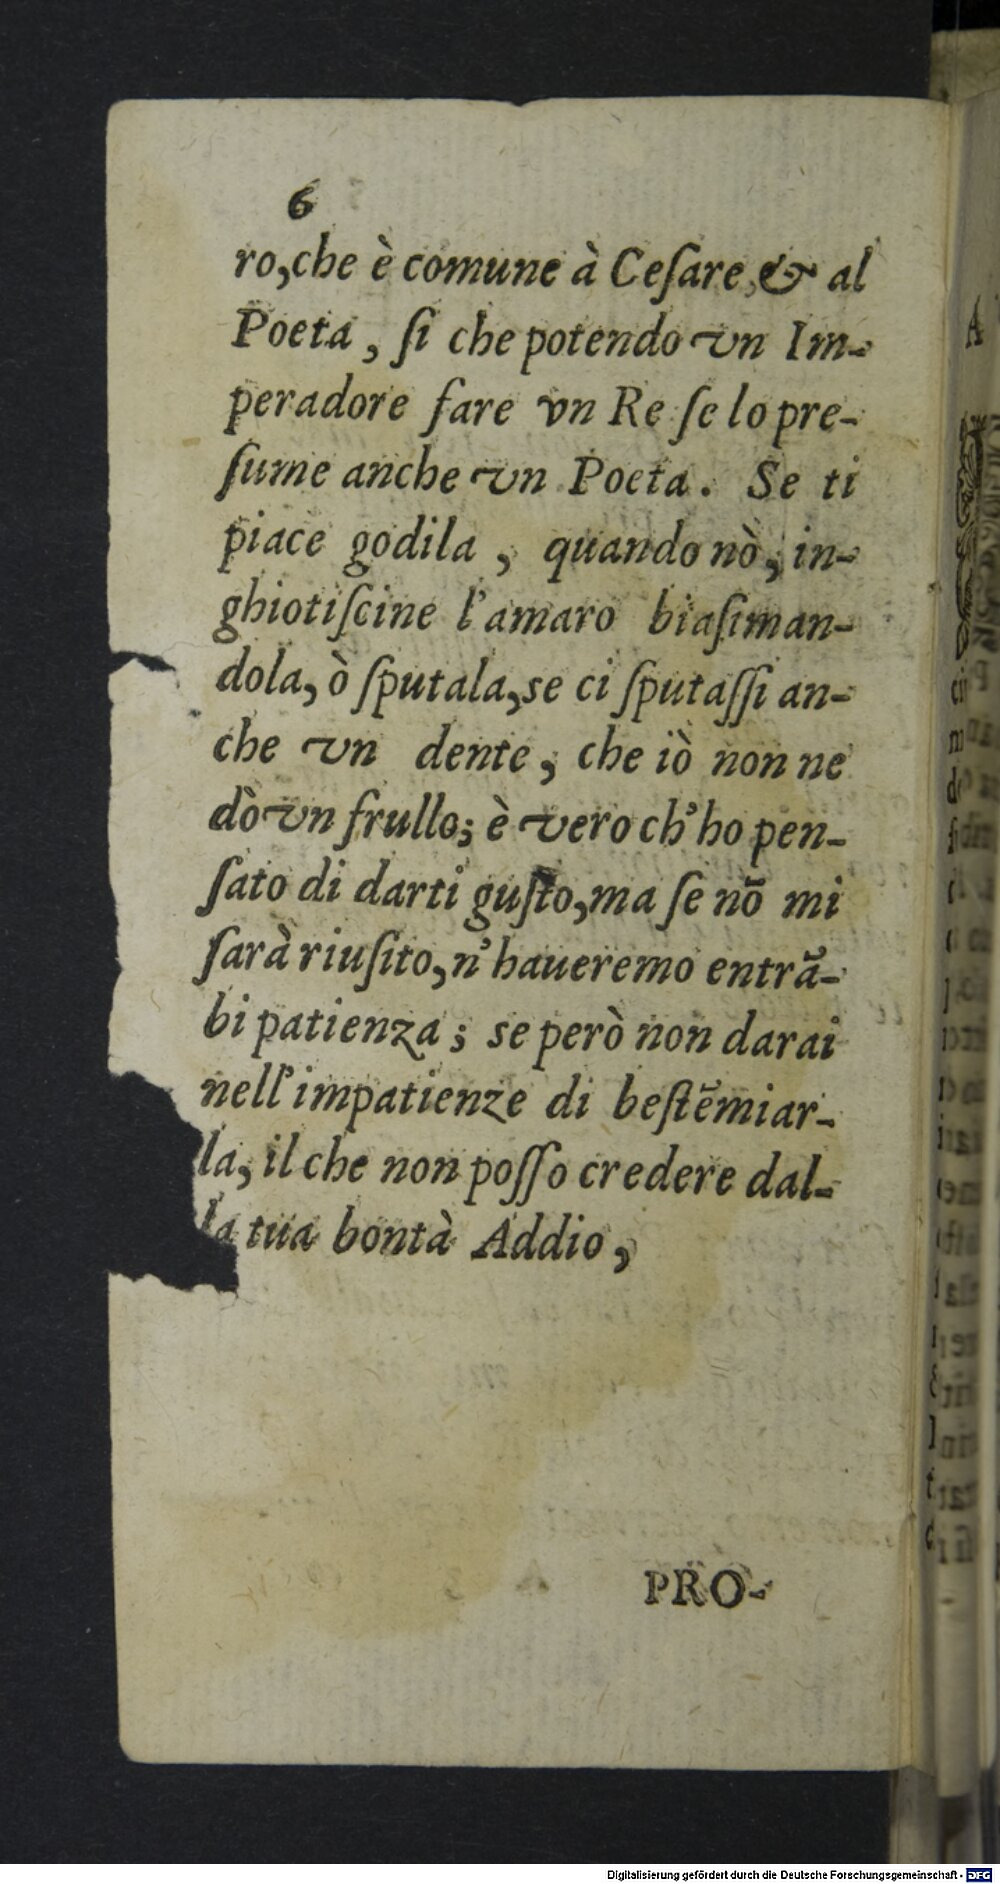 6
ro,che è comune à Ceſare,& al
Poeta, ſi che potendo vn Im-
peradore fare vn Re ſe lo pre-
ſume anche vn Poeta. Se ti
piace godila, quando nò, in-
ghiotiſcine l'amaro biaſiman-
dola, ò ſputala,se ci ſputaſſi an-
che vn dente, che iò non ne
dò vn frullo; è vero ch'ho pen-
ſato di darti guſto,ma ſe nõ mi
ſarà riuſito,n'haueremo entrã-
bi patienza; se però non darai
nell'impatienze di beſtẽmiar-
la, il che non poſſo credere dal-
la tua bontà Addio,
PRO-
Digitalisierung gefördert durch die Deutsche Forschungsgemeinschaft - DFG